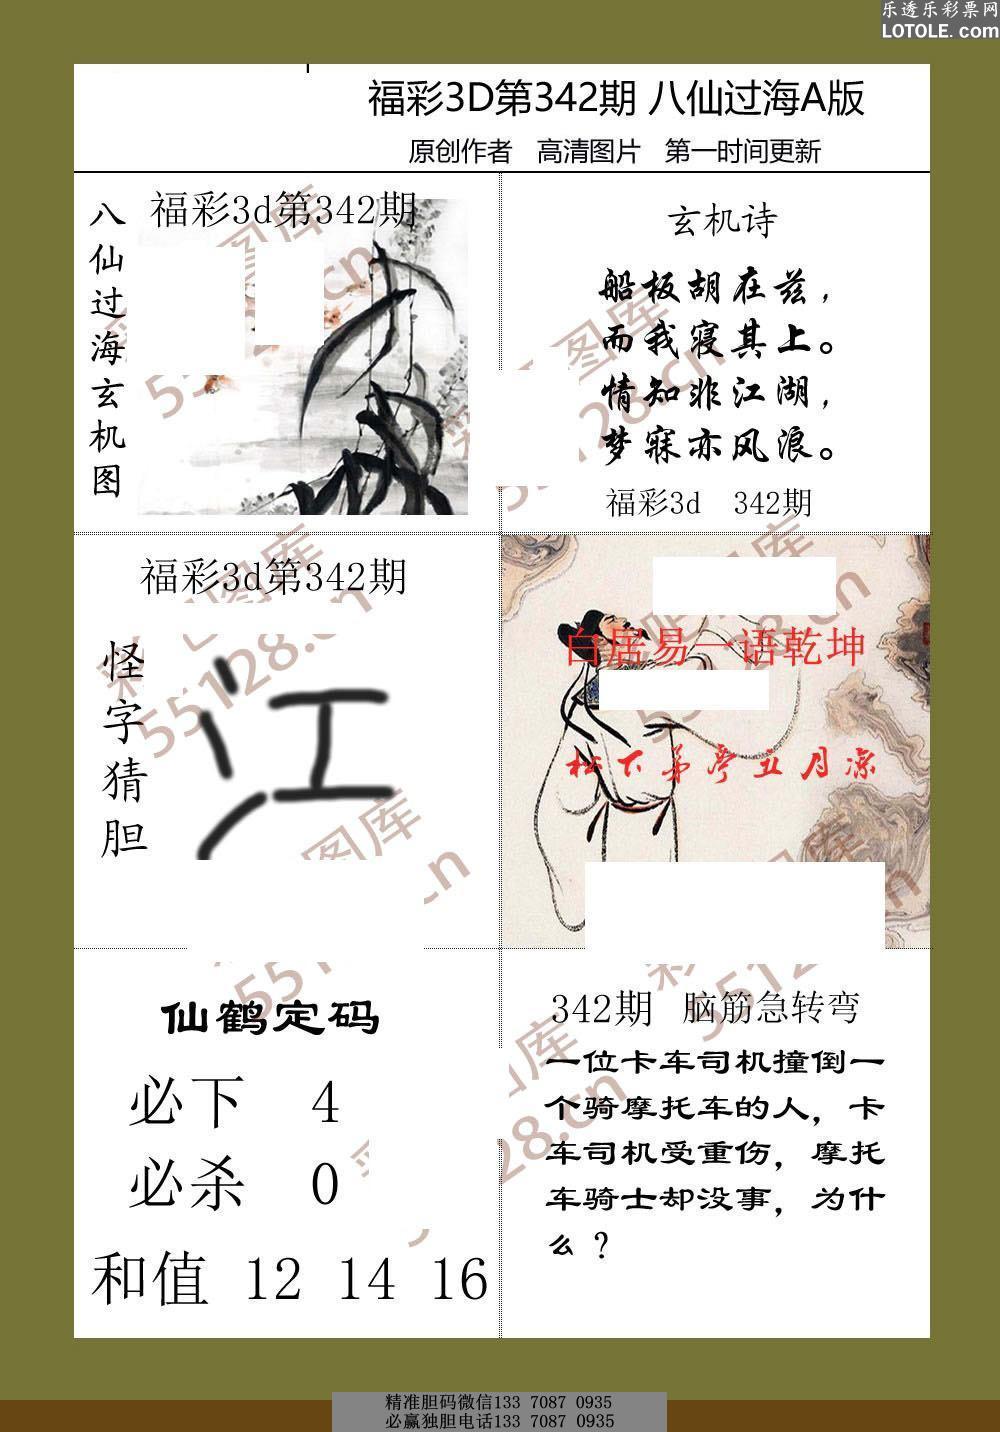 乐透乐彩票网
LOTOLE.com
福彩3D第342期 八仙过海A版
原创作者 高清图片 第一时间更新
福彩3d第342期
八仙过海玄机图
玄机诗
船板胡在兹，
而我寝其上。
情知非江湖，
梦寐亦风浪。
福彩3d 342期
福彩3d第342期
怪字猜胆
江
白居易一语乾坤
松下茅亭五月凉
仙鹤定码
必下 4
必杀 0
和值 12 14 16
342期 脑筋急转弯
一位卡车司机撞倒一
个骑摩托车的人，卡
车司机受重伤，摩托
车骑士却没事，为什
么？
精准胆码微信133 7087 0935
必赢独胆电话133 7087 0935